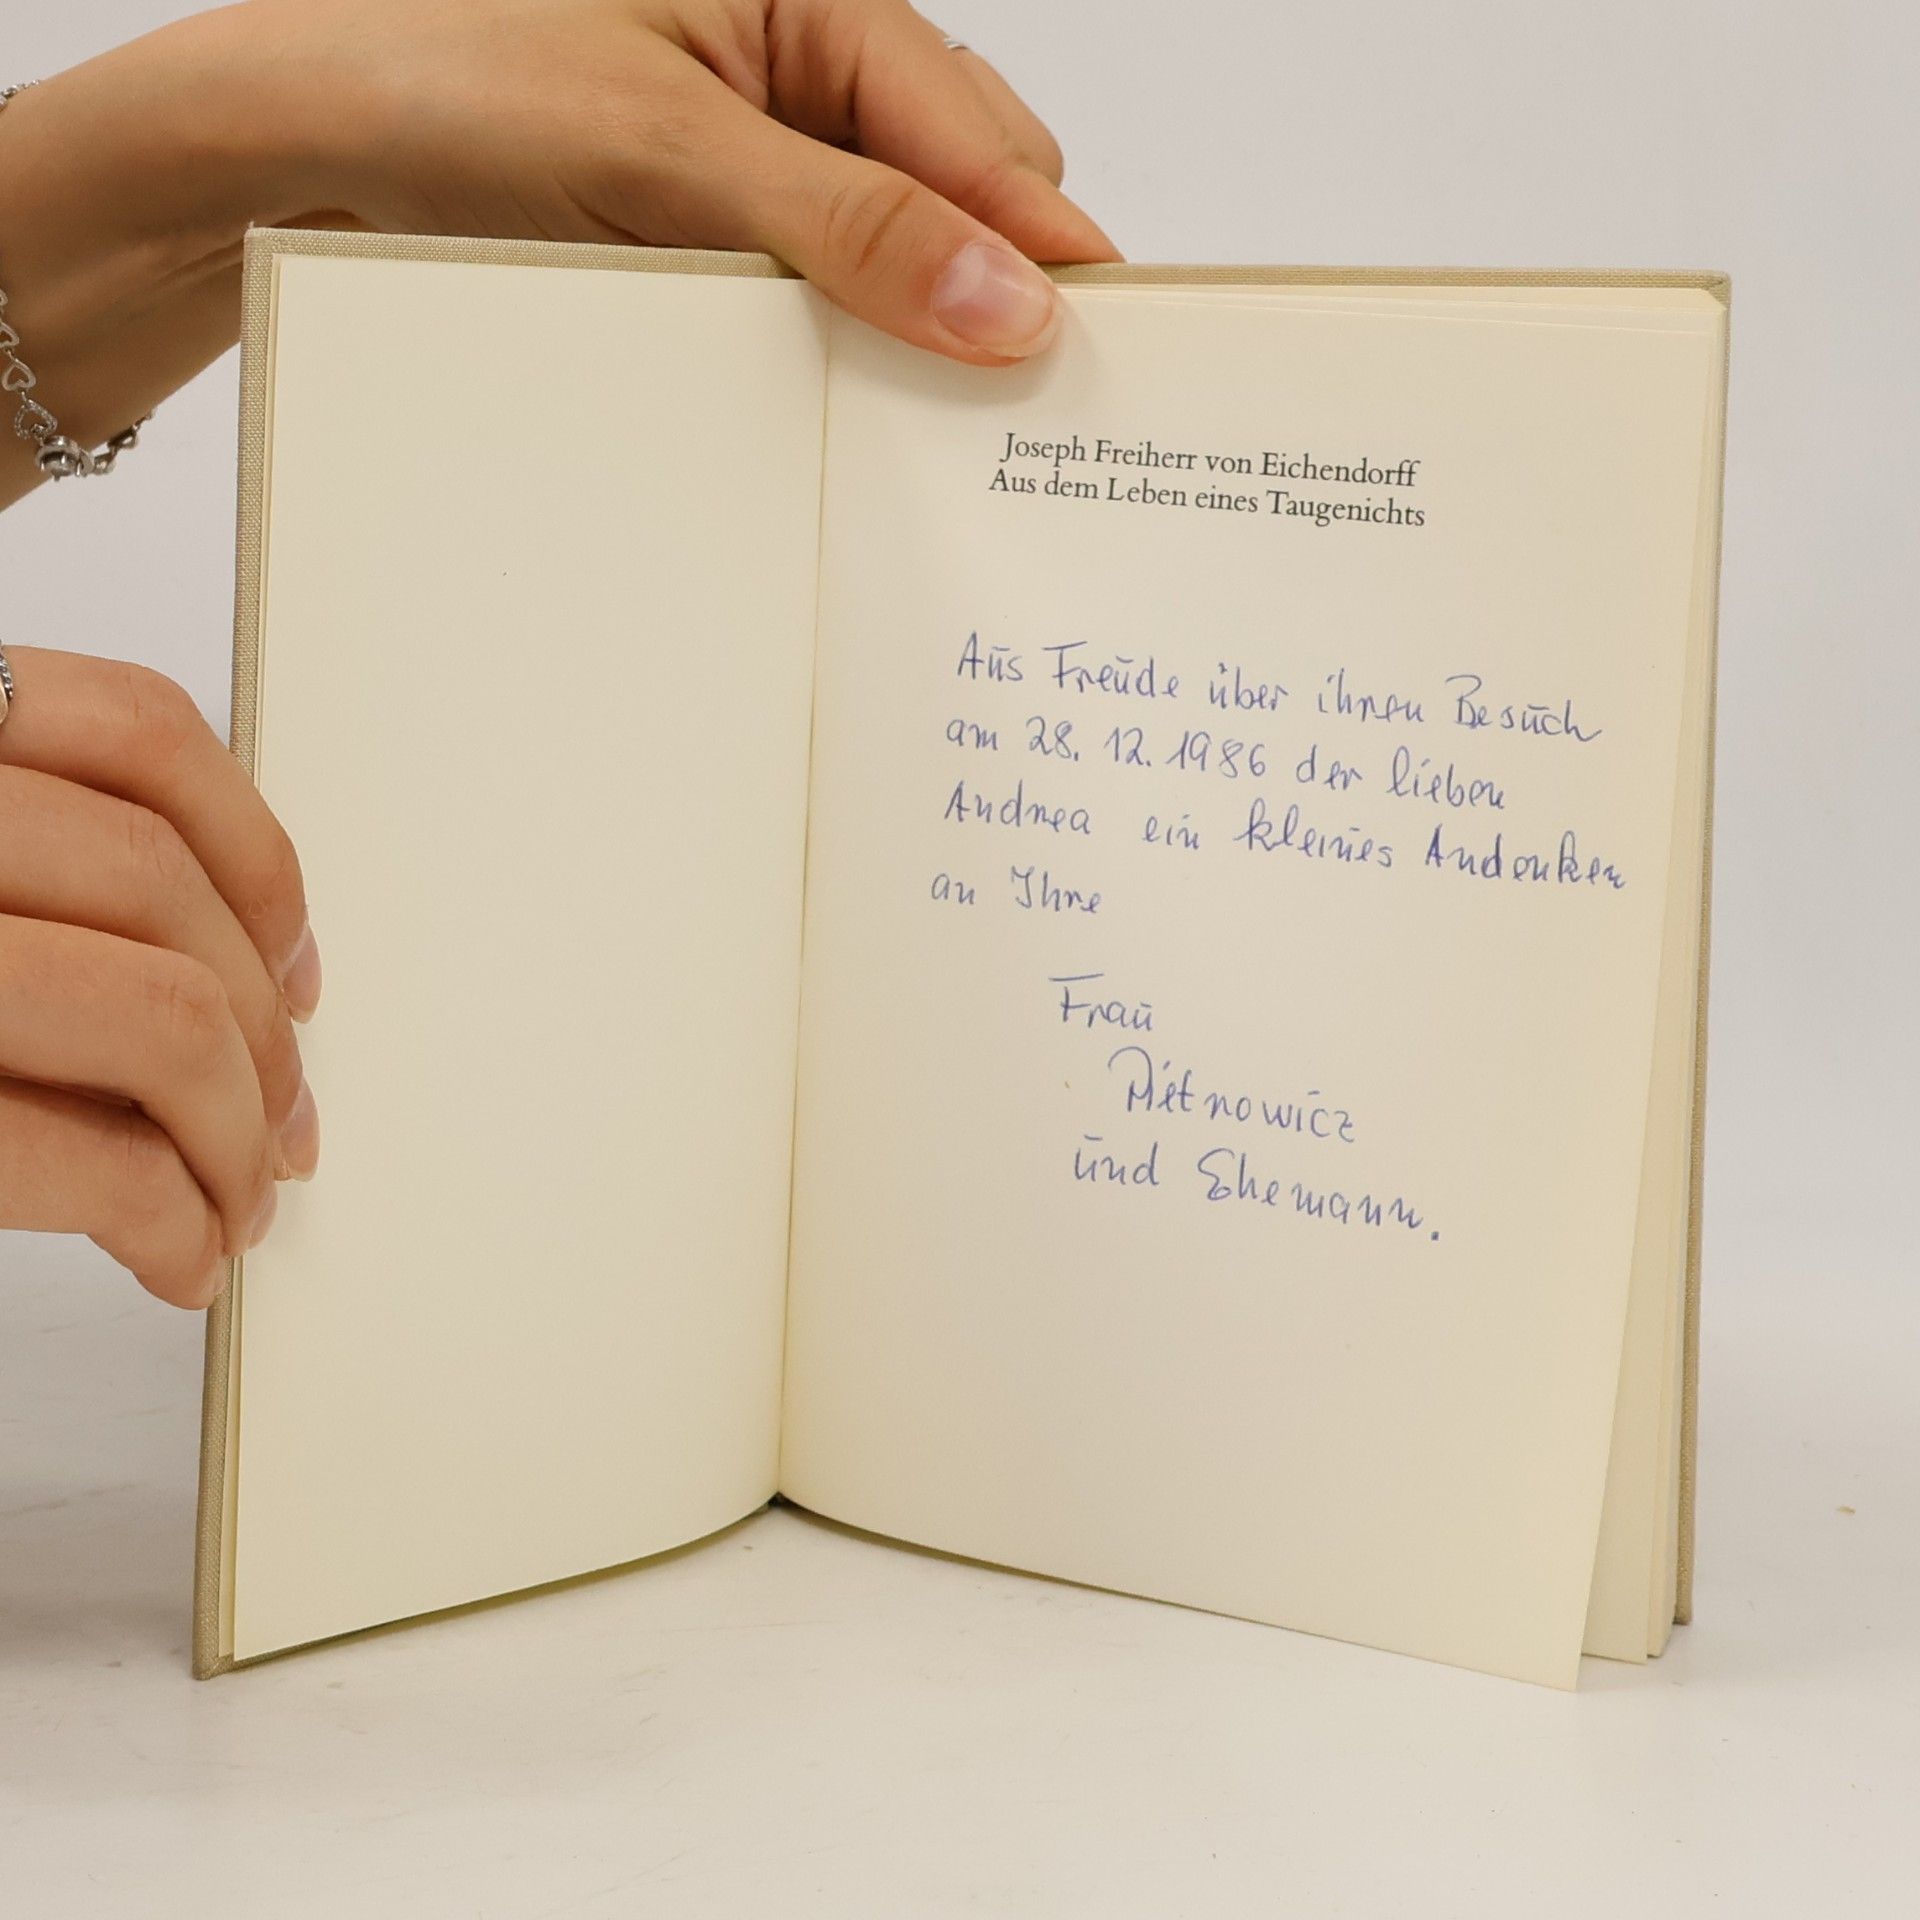 Joseph Freiherr von Eichendorff
Aus dem Leben eines Taugenichts
Aus Freude über ihren Besuch
am 28. 12. 1986 der lieben
Andrea ein kleines Andenken
an Ihre
Frau
und Ehemann.